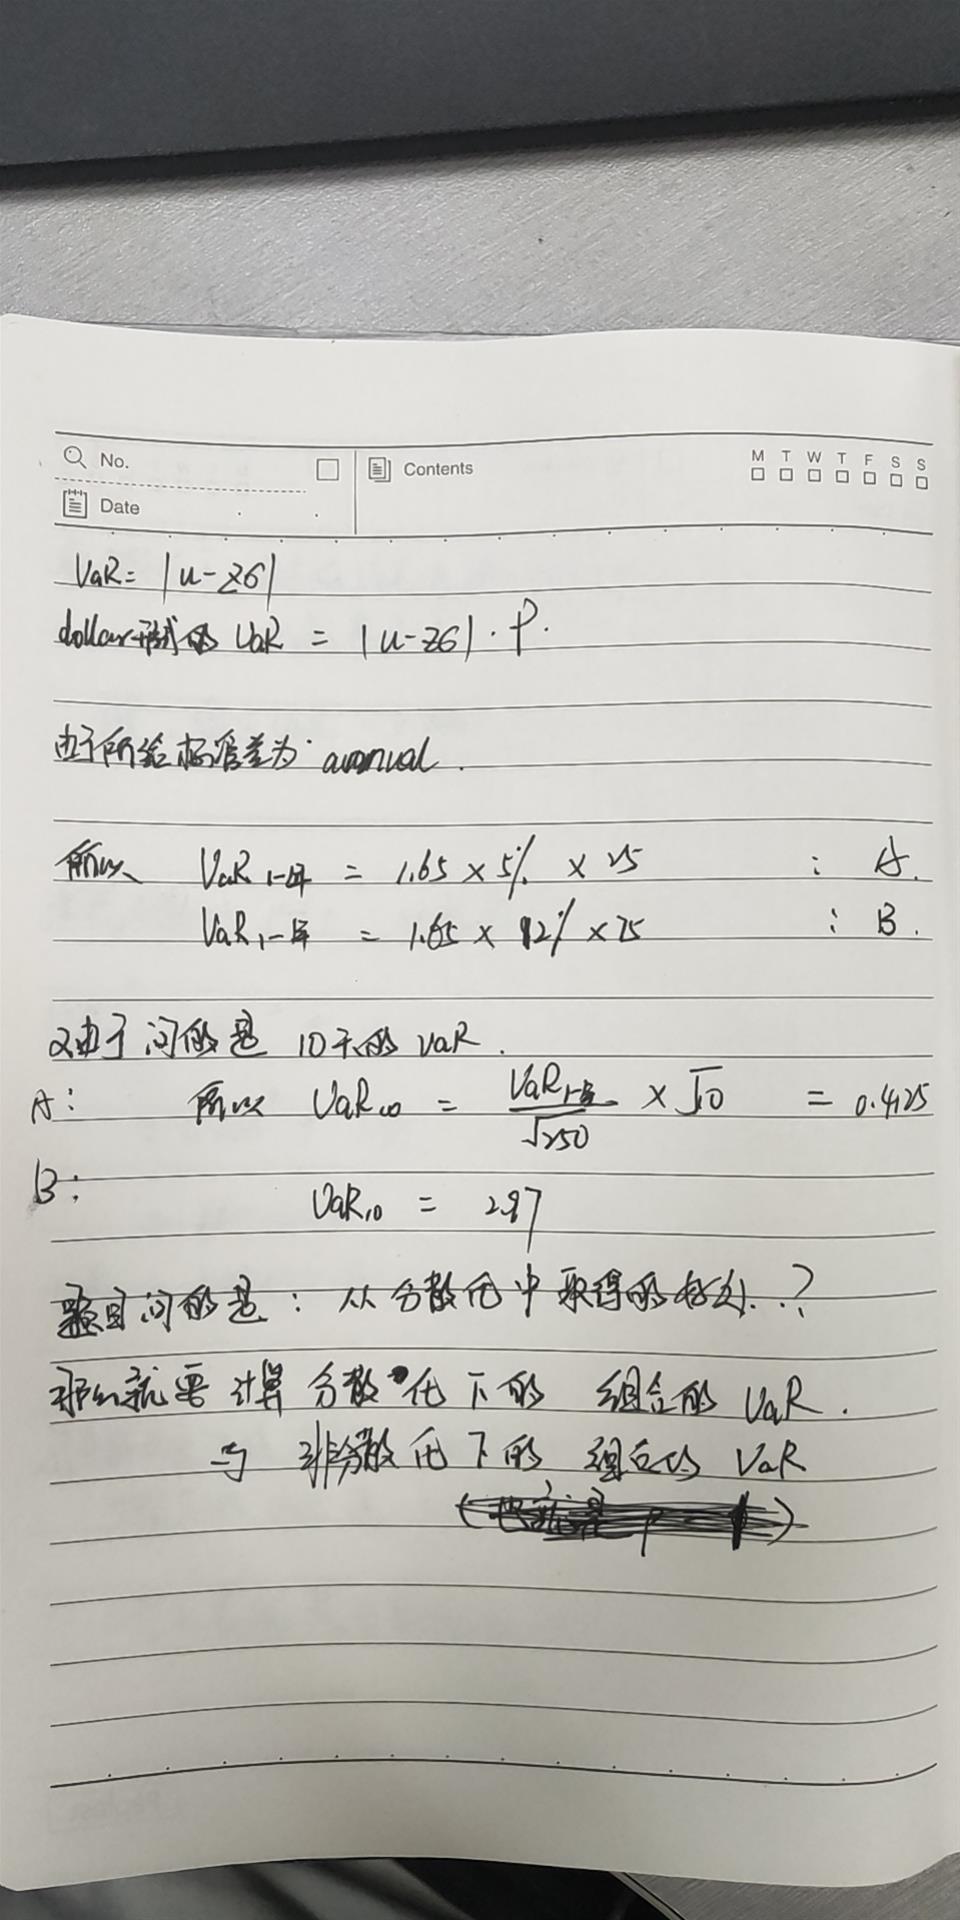 No.
Contents
M T W T F S S
Date
VaR = |u-zσ|
dollar形式的 VaR = |u-zσ|·P.
由于所给标准差为 annual.
所以 VaR 1-年 = 1.65 × 5% × 25 : A.
VaR 1-年 = 1.65 × 12% × 75 : B.
又由于问的是 10天的 VaR.
A: 所以 VaR10 = VaR1-年/√250 × √10 = 0.4125
B: VaR10 = 2.97
题目问的是: 从分散化中取得的好处..?
那么就要计算分散化下的 组合的 VaR.
与 非分散化下的 组合的 VaR